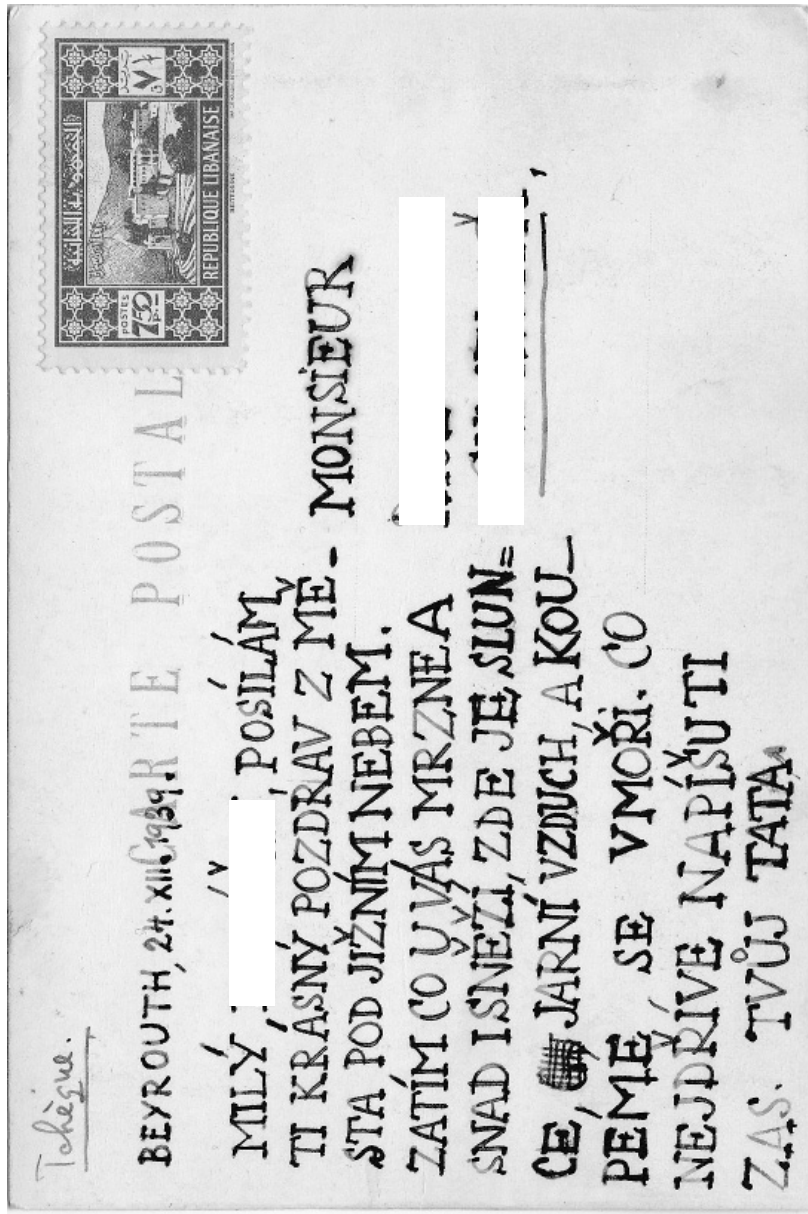 Tchèque.
CARTE POSTAL
BEYROUTH, 24. XII. 1939.
MILÝ , POSÍLÁM
TI KRÁSNÝ POZDRAV Z MĚ-
STA POD JIŽNÍM NEBEM.
ZATÍM CO U VÁS MRZNE A
SNAD I SNĚŽÍ, ZDE JE SLUN=
CE, JARNÍ VZDUCH, A KOU-
PÉME SE V MOŘI. CO
NEJDŘÍVE NAPÍŠU TI
ZAS. TVŮJ TATA.
MONSIEUR
POSTES
7P.50
REPUBLIQUE LIBANAISE